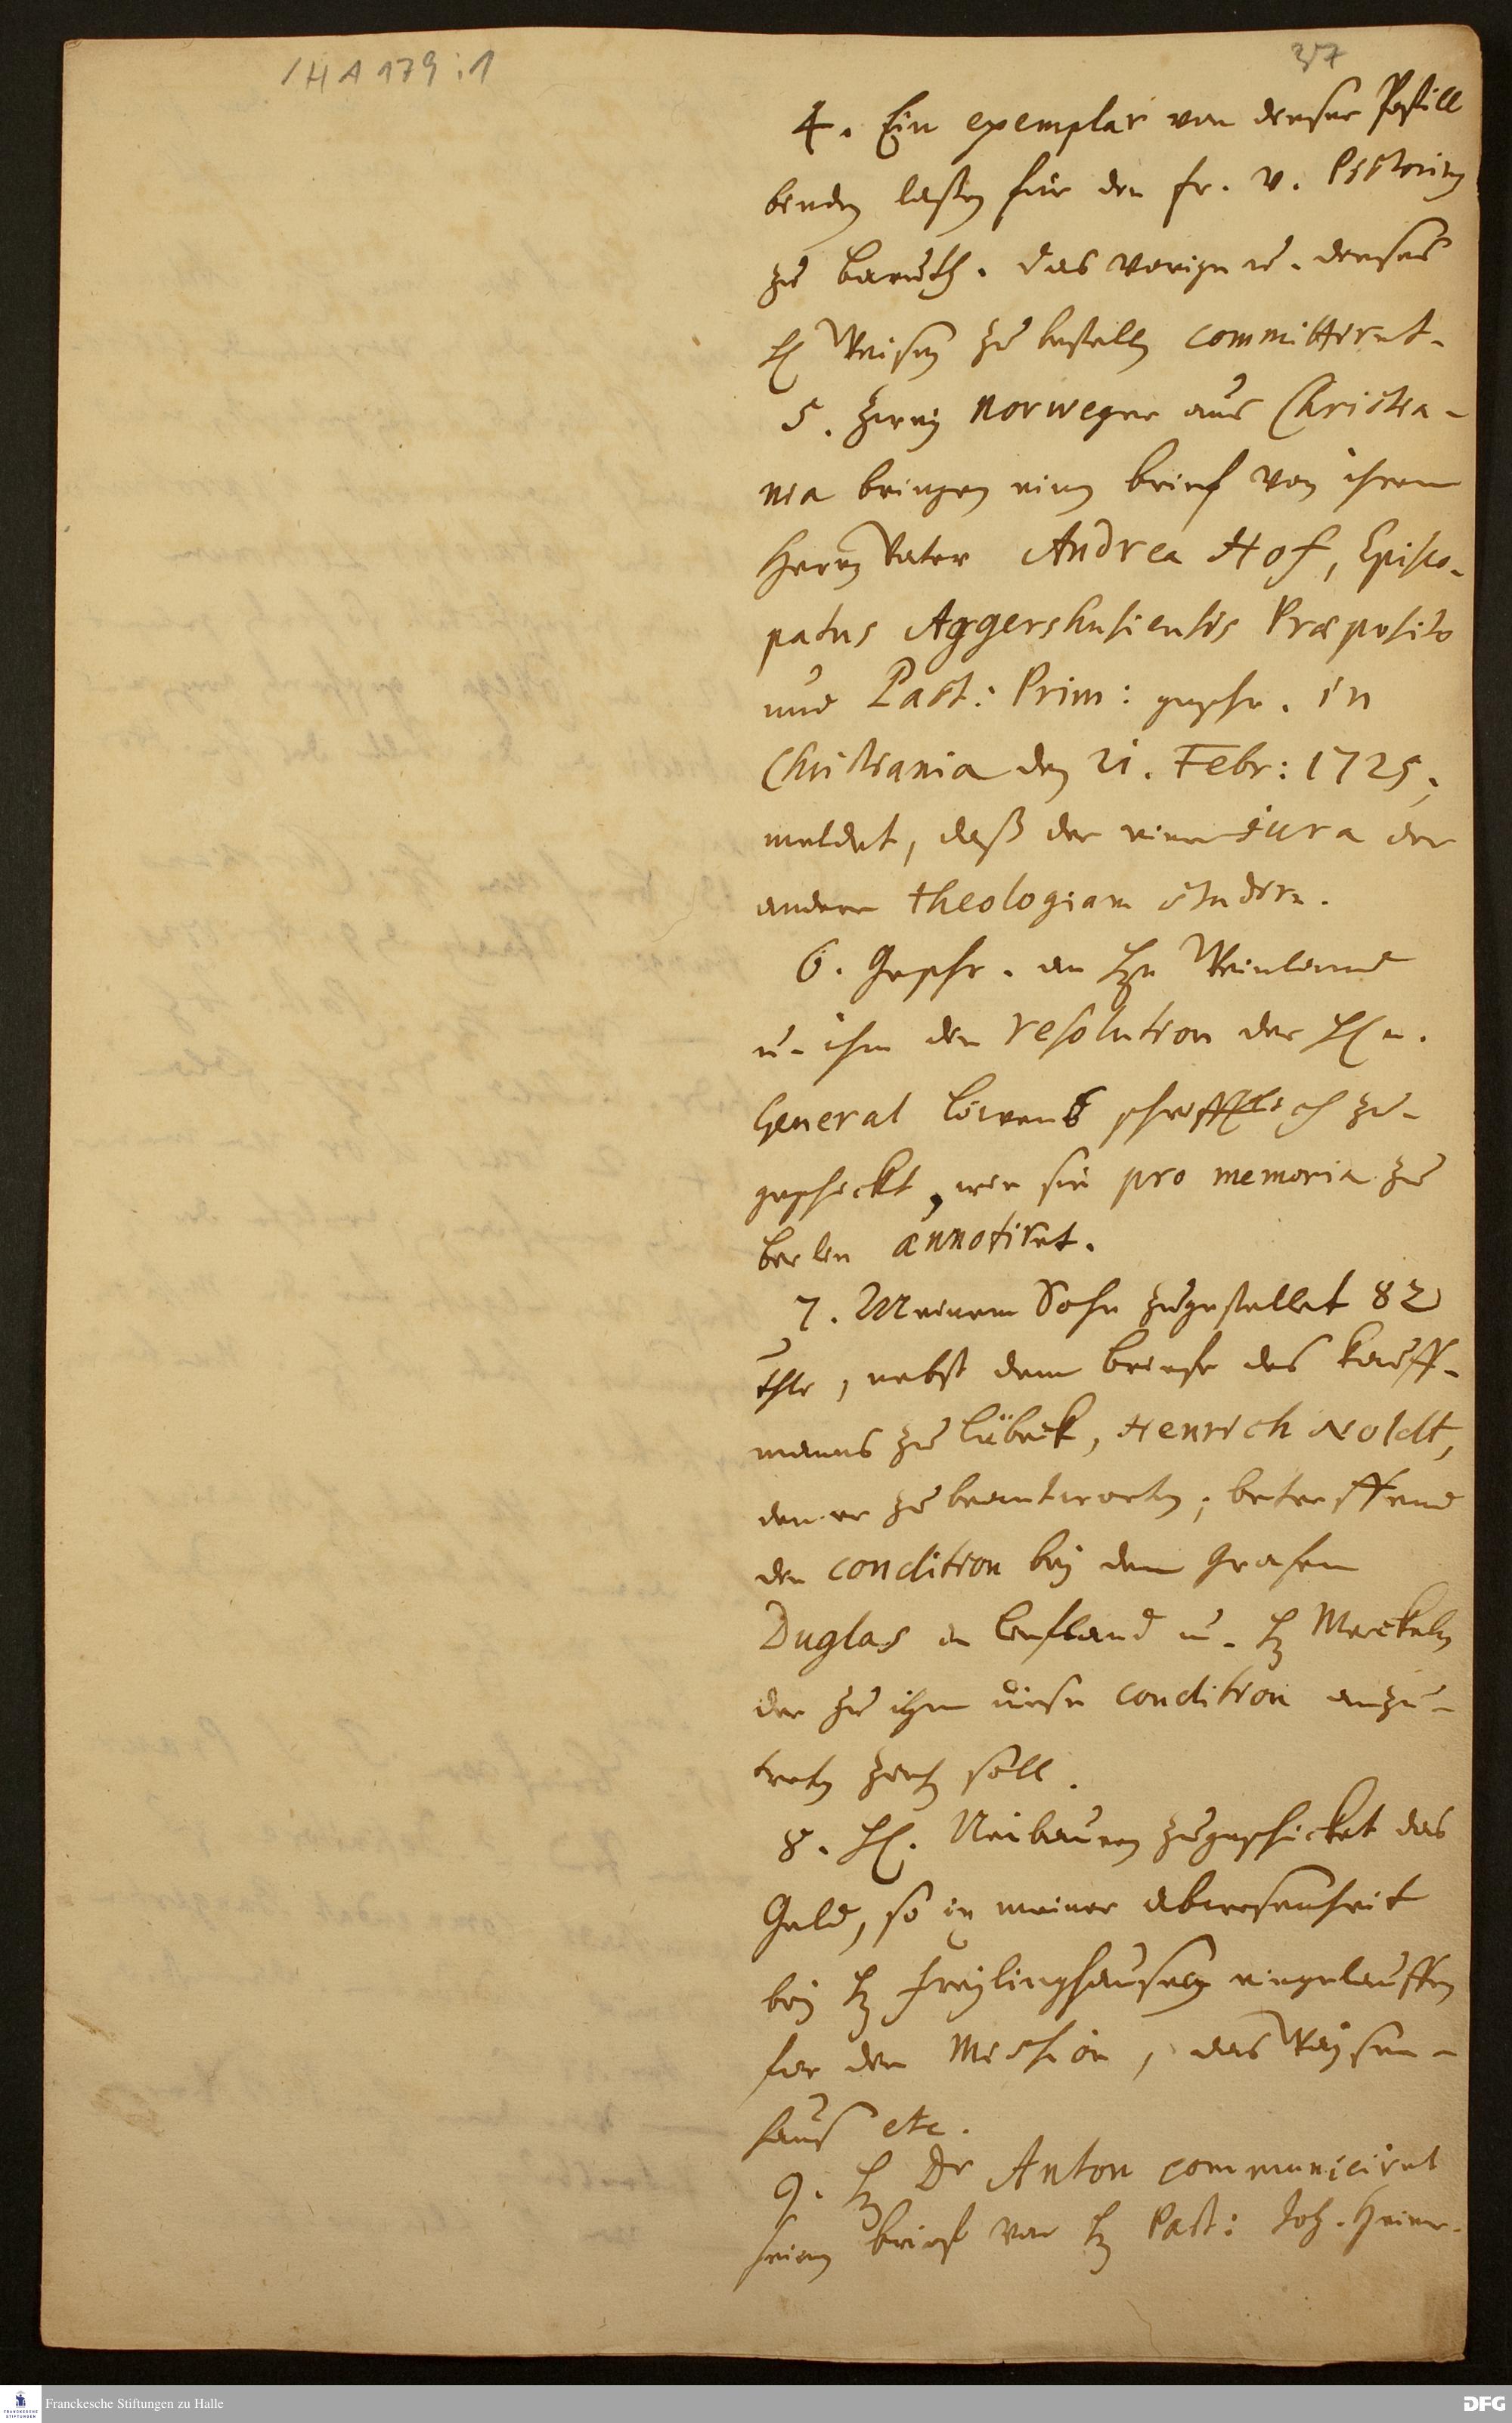 /HA 179:1
37
4. Ein exemplar von dieser Postill
binden laßen für die fr. v.
zu Baruth. das vorige u. dieses
H Weisen zu bestellen committiret.
5. Zween Norweger aus Christia-
nia bringen einen brief von ihrem
Herrn Vater Andrea Hof, Episco-
patus Aggershusiensis Præposito
und Past: Prim: geschr. in
Christiania den 21. Febr: 1725,
meldet, daß der eine jura der
andere theologiam studire.
6. Geschr. an Hn Weinland
u. ihm die resolution der H n.
General Löwens schrifftlich zu-
geschickt, wie sie pro memoria zu
Berlin annotiret.
7. Meinem Sohn zugestellet 82
thlr, nebst dem briefe des Kauff-
manns zu Lübeck, Henrich Noldt,
den er zu beantworten; betreffend
die condition bey dem Grafen
Duglas in Liefland u. H Merckeln
der zu ihm diese condition anzu-
treten ziehen soll.
8. H. Neubauern zugeschicket das
Geld, so in meiner abwesenheit
bey H Freylinghausen eingelauffen
für die Mission, das Waysen-
haus etc.
9. H Dr Anton communiciret
einen brief von H Past: Joh. Heinr.
Franckesche Stiftungen zu Halle
DFG